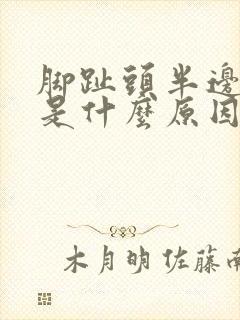 脚趾頭半邊
是什麼原因
木月明佐藤南